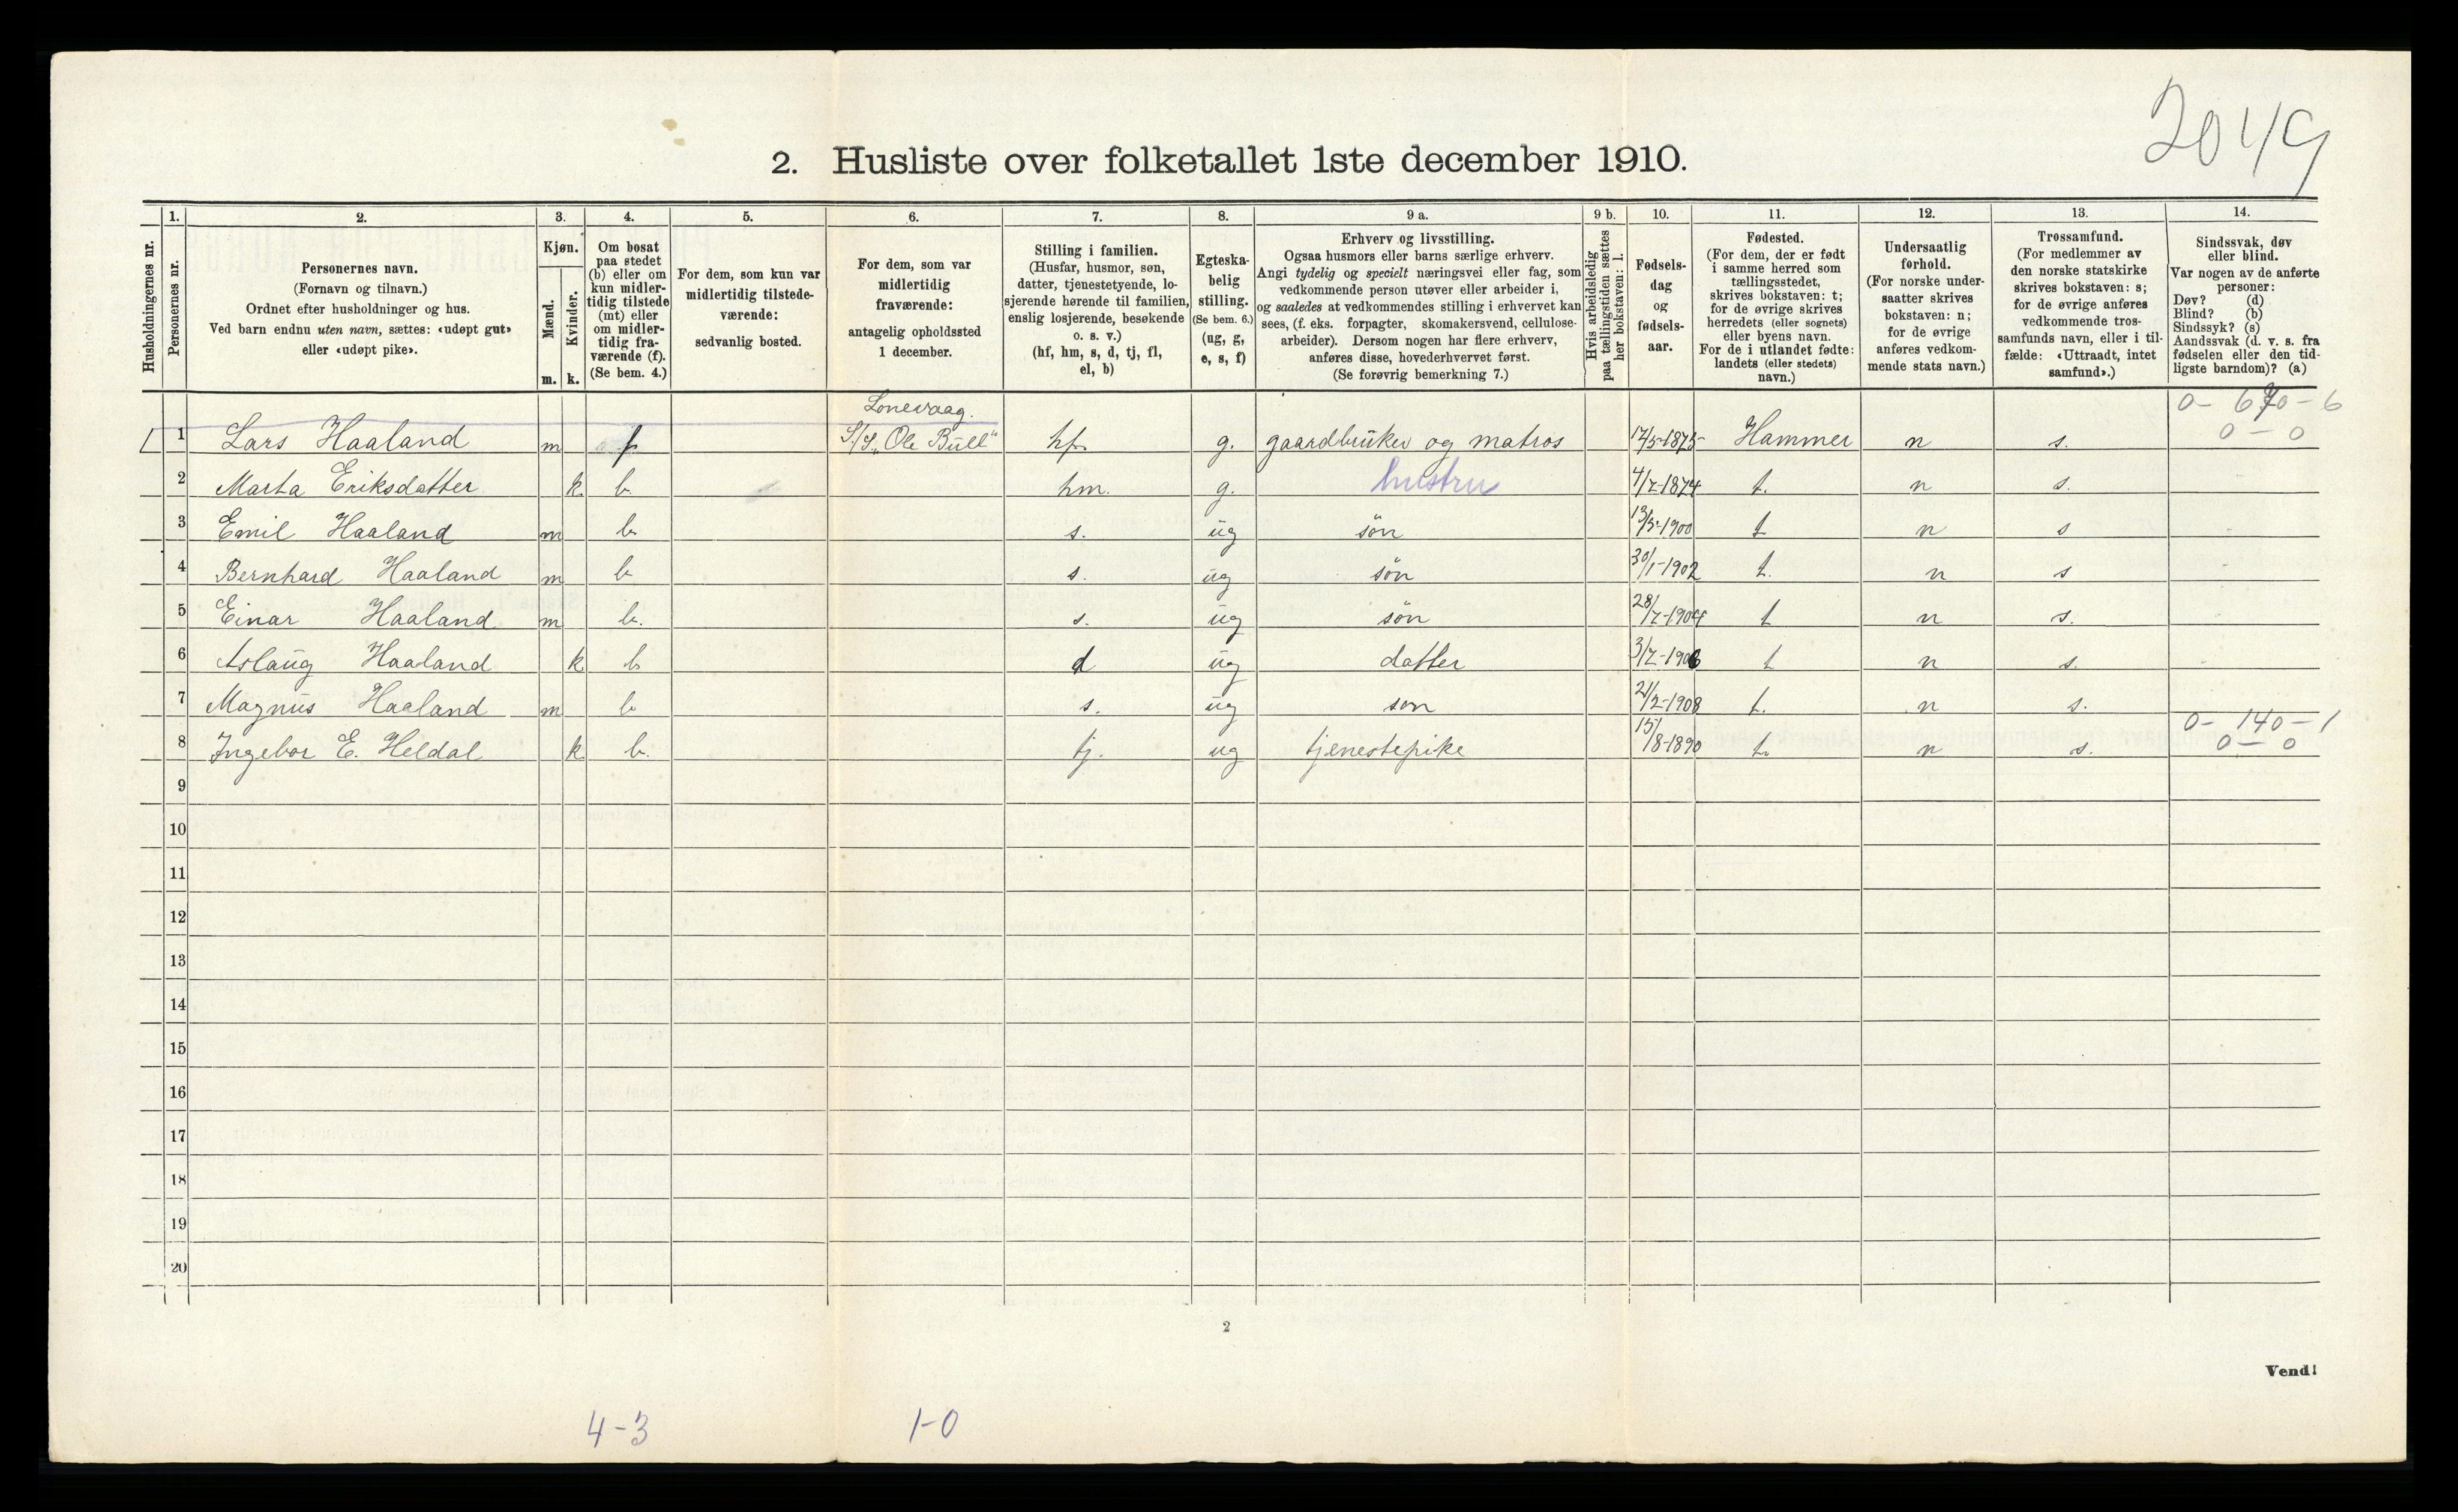 2049
2. Husliste over folketallet 1ste december 1910.
1. 2. 3. 4. 5. 6. 7. 8. 9 a. 9 b. 10. 11. 12. 13. 14.
Husholdningernes nr.
Personernes nr.
Personernes navn.
(Fornavn og tilnavn.)
Ordnet efter husholdninger og hus.
Ved barn endnu uten navn, sættes: «udøpt gut»
eller «udøpt pike».
Kjøn.
Mænd.
Kvinder.
m. k.
Om bosat
paa stedet
(b) eller om
kun midler-
tidig tilstede
(mt) eller
om midler-
tidig fra-
værende (f).
(Se bem. 4.)
For dem, som kun var
midlertidig tilstede-
værende:
sedvanlig bosted.
For dem, som var
midlertidig
fraværende:
antagelig opholdssted
1 december.
Stilling i familien.
(Husfar, husmor, søn,
datter, tjenestetyende, lo-
sjerende hørende til familien,
enslig losjerende, besøkende
o. s. v.)
(hf, hm, s, d, tj, fl,
el, b)
Egteska-
belig
stilling.
(Se bem. 6.)
(ug, g,
e, s, f)
Erhverv og livsstilling.
Ogsaa husmors eller barns særlige erhverv.
Angi tydelig og specielt næringsvei eller fag, som
vedkommende person utøver eller arbeider i,
og saaledes at vedkommendes stilling i erhvervet kan
sees, (f. eks. forpagter, skomakersvend, cellulose-
arbeider). Dersom nogen har flere erhverv,
anføres disse, hovederhvervet først.
(Se forøvrig bemerkning 7.)
Hvis arbeidsledig
paa tællingstiden sættes
her bokstaven: l.
Fødsels-
dag
og
fødsels-
aar.
Fødested.
(For dem, der er født
i samme herred som
tællingsstedet,
skrives bokstaven: t;
for de øvrige skrives
herredets (eller sognets)
eller byens navn.
For de i utlandet fødte:
landets (eller stedets)
navn.)
Undersaatlig
forhold.
(For norske under-
saatter skrives
bokstaven: n;
for de øvrige
anføres vedkom-
mende stats navn.)
Trossamfund.
(For medlemmer av
den norske statskirke
skrives bokstaven: s;
for de øvrige anføres
vedkommende tros-
samfunds navn, eller i til-
fælde: «Uttraadt, intet
samfund».)
Sindssvak, døv
eller blind.
Var nogen av de anførte
personer:
Døv? (d)
Blind? (b)
Sindssyk? (s)
Aandssvak (d. v. s. fra
fødselen eller den tid-
ligste barndom)? (a)
Lonevaag.
1 Lars Haaland m f S/S „Ole Bull" hf. g. gaardbruker og matros 17/5-1875 Hammer n s. 0-0
2 Marta Eriksdatter k b. hm. g. hustru 4/7-1874 t. n s.
3 Emil Haaland m b. s. ug søn 13/5-1900 t n s
4 Bernhard Haaland m b s. ug søn 30/1-1902 t. n s
5 Einar Haaland m b. s. ug søn 28/7-1904 t n s.
6 Aslaug Haaland k b d ug datter 3/7-1906 t n s.
7 Magnus Haaland m b s. ug søn 21/2-1908 t. n s.
0- 140-1
8 Ingebor E. Heldal k b. tj. ug tjenestepike 15/8-1890 t. n s. 0-0
9
10
11
12
13
14
15
16
17
18
19
20
2
Vend!
4-3 1-0